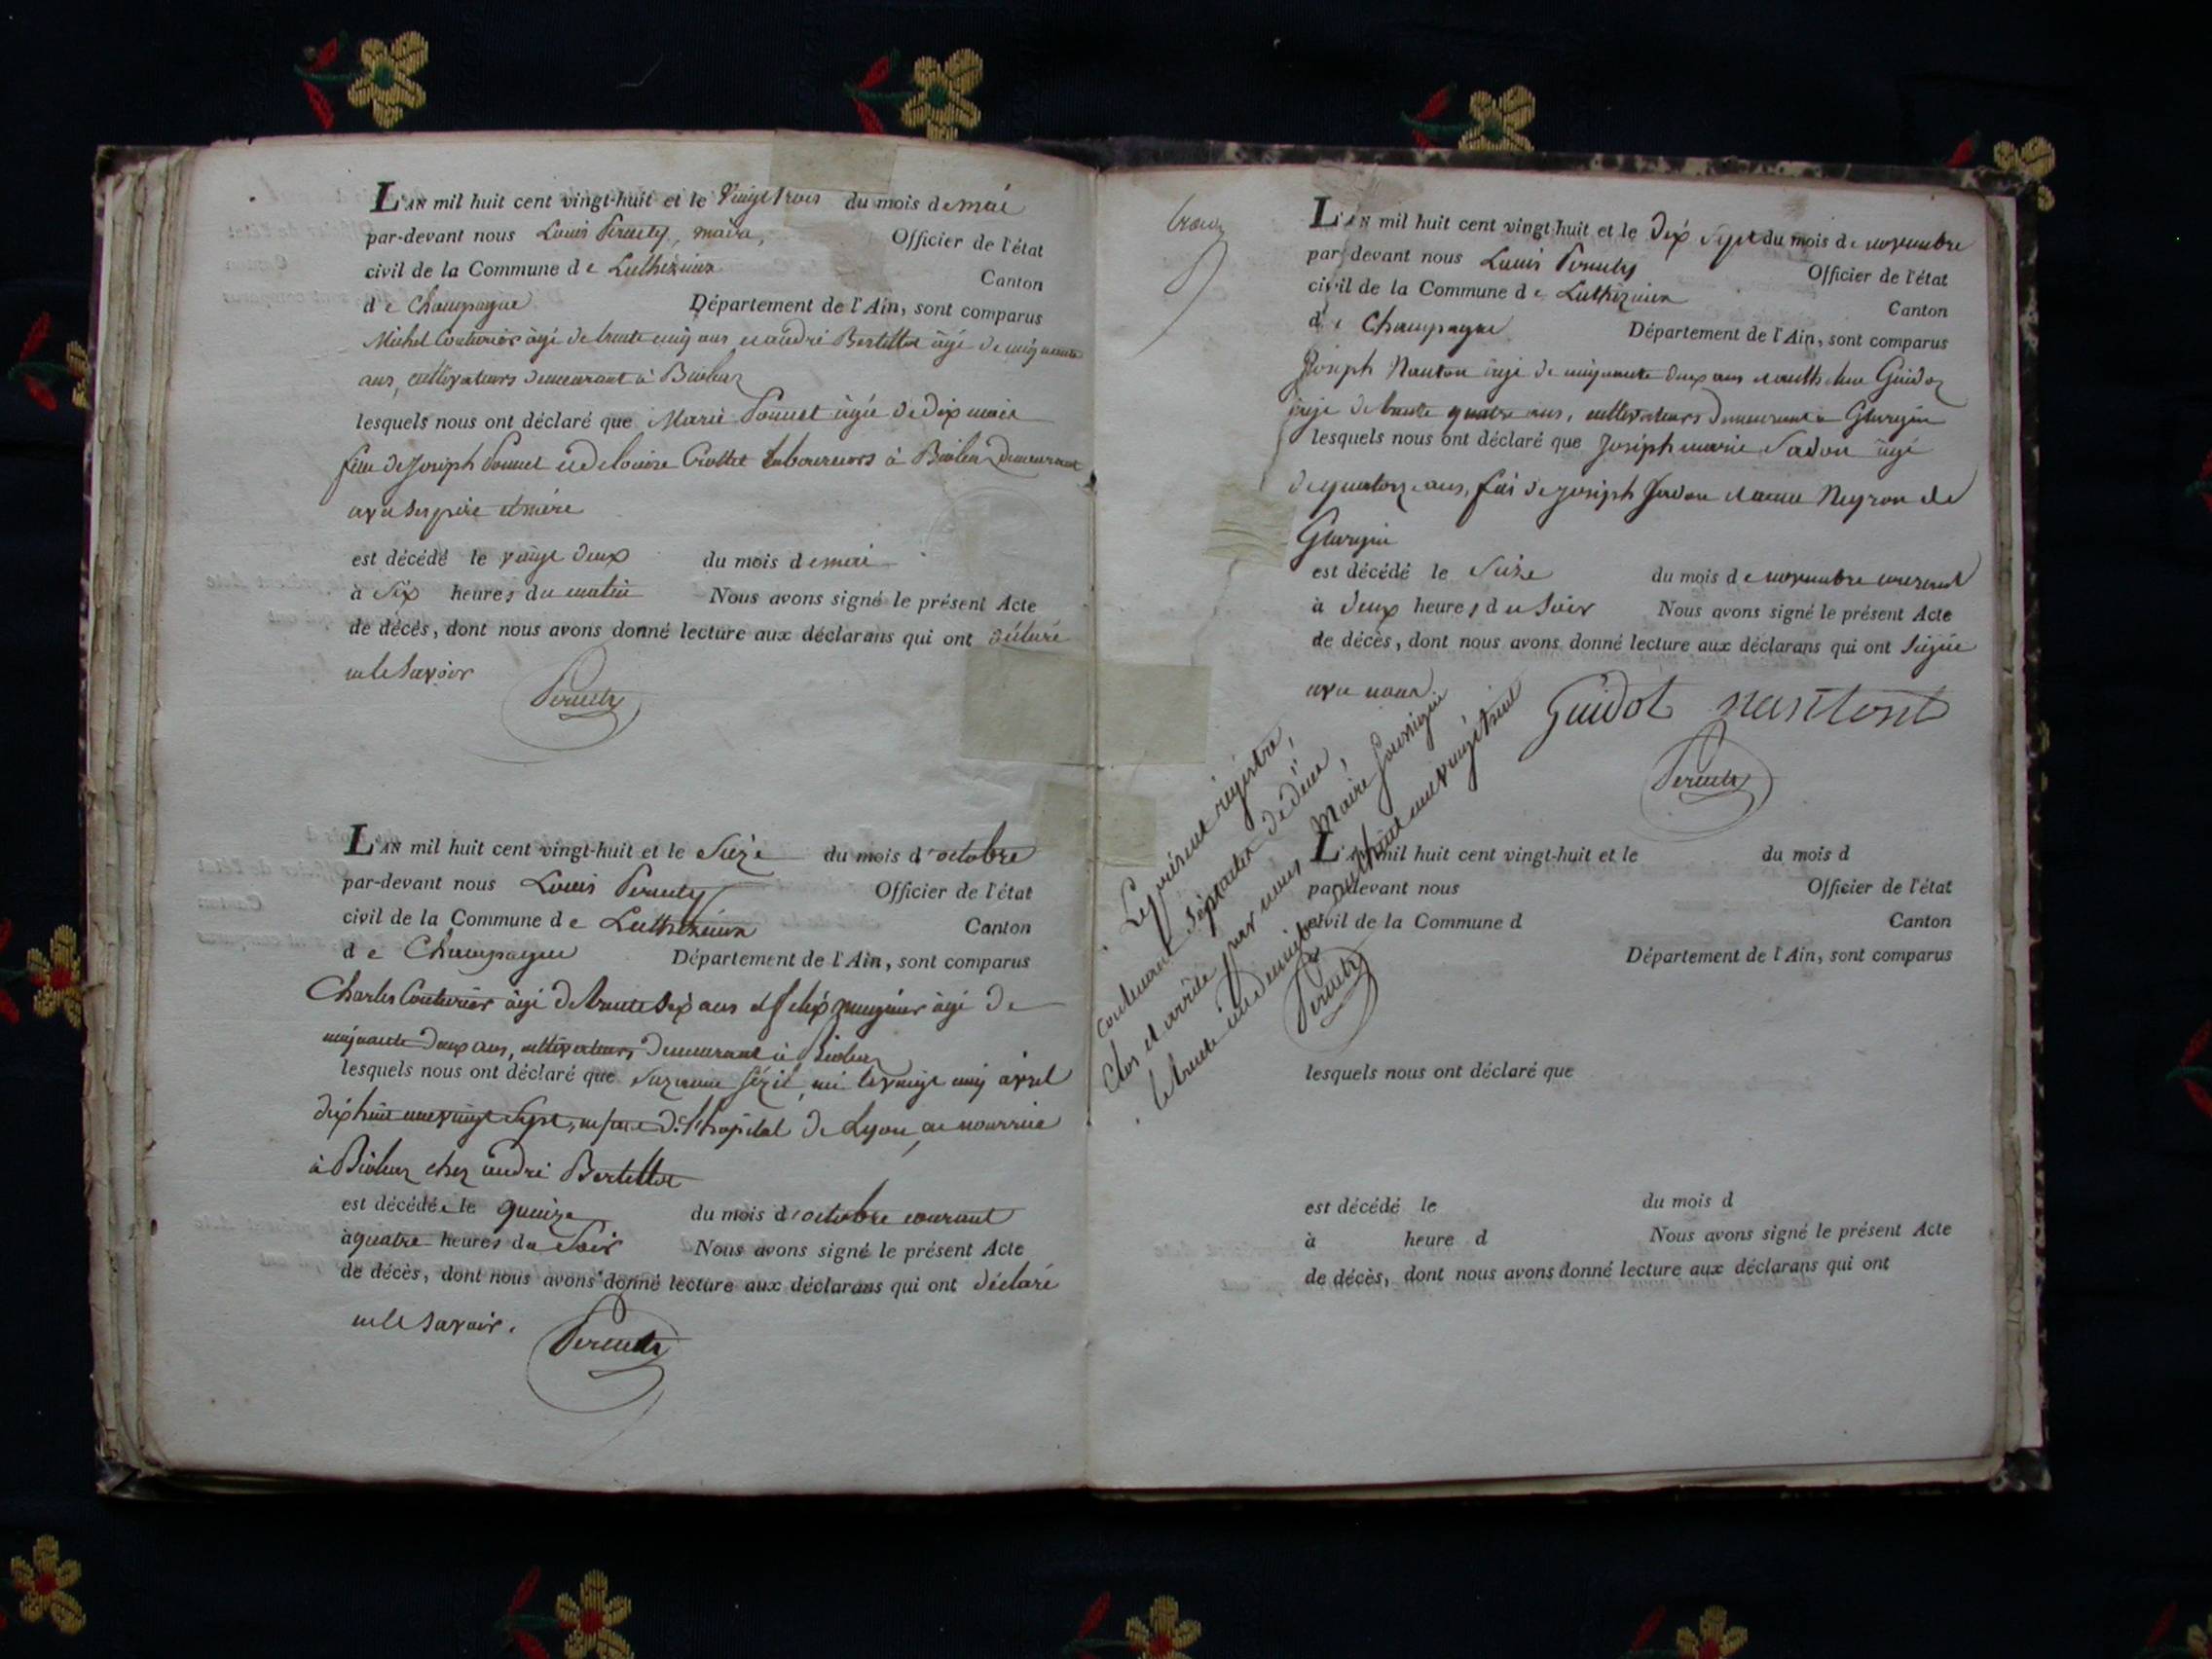 L'AN mil huit cent vingt-huit et le vingt trois du mois de mai
par-devant nous Louis Pernety, maire, Officier de l'état
civil de la Commune de Luthezieux Canton
de Champagne Département de l'Ain, sont comparus
Michel Couturier âgé de trente cinq ans et andré Bertillot âgé de cinquante
ans, cultivateurs demeurant à Bioleaz
lesquels nous ont déclaré que Marie Ponnet âgée de dix mois
fille de Joseph Ponnet et de Louise Crottet laboureurs à Bioleaz demeurant
avec ses père et mère
est décédé le vingt deux du mois de mai
à Six heures du matin Nous avons signé le présent Acte
de décès, dont nous avons donné lecture aux déclarans qui ont déclaré
ne le savoir
L'AN mil huit cent vingt-huit et le Seize du mois d'octobre
par-devant nous Louis Pernety Officier de l'état
civil de la Commune de Luthezieux Canton
de Champagne Département de l'Ain, sont comparus
Charles Couturier âgé de trente Six ans et felix âgé de
cinquante deux ans, cultivateurs demeurant à Bioleaz
lesquels nous ont déclaré que Suzanne née le vingt cinq avril
dix huit cent vingt Sept, enfant de l'hopital de Lyon, en nourrice
à Bioleaz chez andré Bertillot
est décédée le quinze du mois d'octobre courant
à quatre heures du Soir Nous avons signé le présent Acte
de décès, dont nous avons donné lecture aux déclarans qui ont déclaré
ne le savoir.
L'AN mil huit cent vingt-huit et le Dix Sept du mois de novembre
par devant nous Louis Pernety Officier de l'état
civil de la Commune de Luthezieux Canton
de Champagne Département de l'Ain, sont comparus
Joseph Nanton âgé de cinquante deux ans et anthelme Guidoz
âgé de trente quatre ans, cultivateurs demeurant à
lesquels nous ont déclaré que Joseph marie Jadon âgé
de quatorze ans, fils de Joseph Jadon et anne Neyron de
est décédé le Seize du mois de novembre courant
à deux heures du Soir Nous avons signé le présent Acte
de décès, dont nous avons donné lecture aux déclarans qui ont Signé
avec nous. Guidot nantont
Le présent régistre,
contenant Sept actes de décès,
clos et arrêté par nous Maire Soussigné
le trente un décembre dix huit cent vingt huit
L'AN mil huit cent vingt-huit et le du mois d
par devant nous Officier de l'état
civil de la Commune d Canton
d Département de l'Ain, sont comparus
lesquels nous ont déclaré que
est décédé le du mois d
à heure d Nous avons signé le présent Acte
de décès, dont nous avons donné lecture aux déclarans qui ont